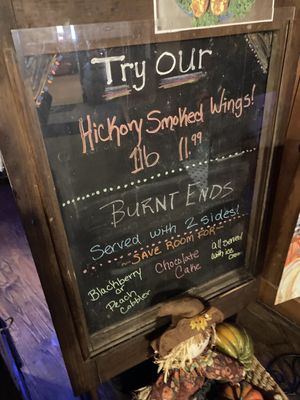 Try Our
Hickory Smoked Wings!
1lb 11.99
BURNT ENDS
Served with 2 sides!
SAVE ROOM FOR
Blackberry
or
Peach
Cobbler
Chocolate
Cake
all served
with ice
cream